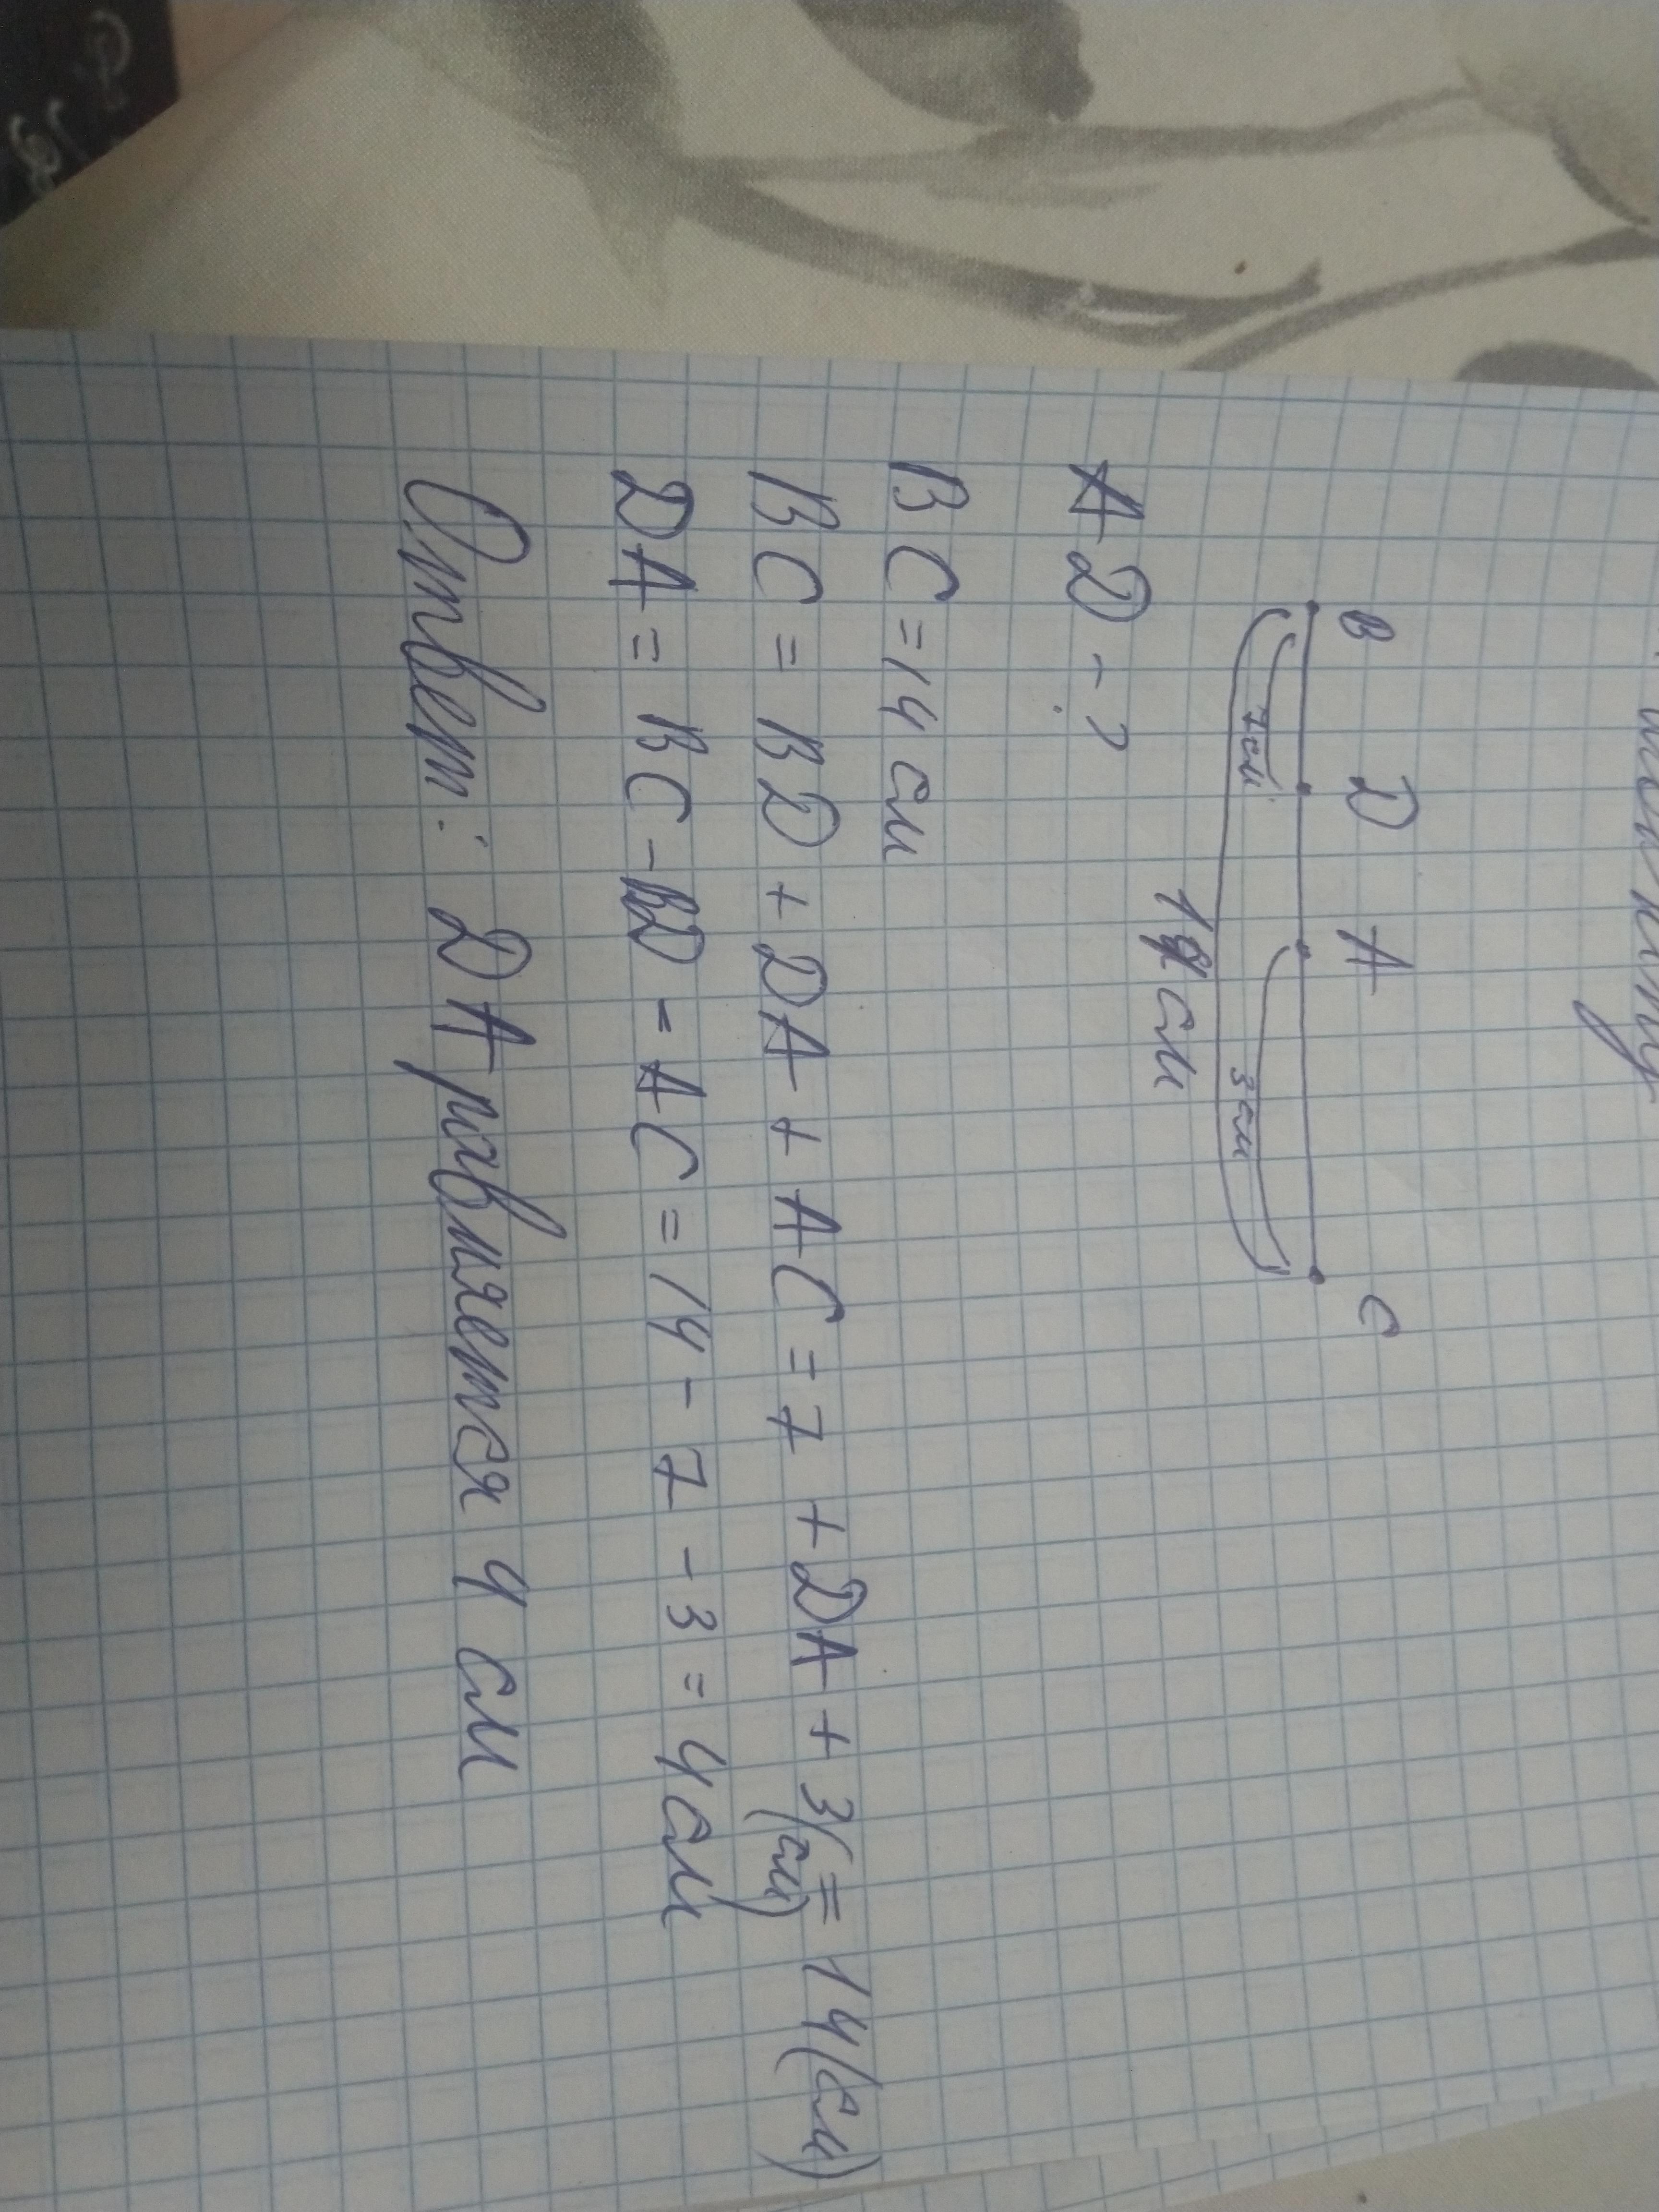 B D A C
7см 3см
14 см
AD - ?
BC = 14 см
BC = BD + DA + AC = 7 + DA + 3 = 14 (см)
(см)
DA = BC - BD - AC = 14 - 7 - 3 = 4 см
Ответ: DA равняется 4 см